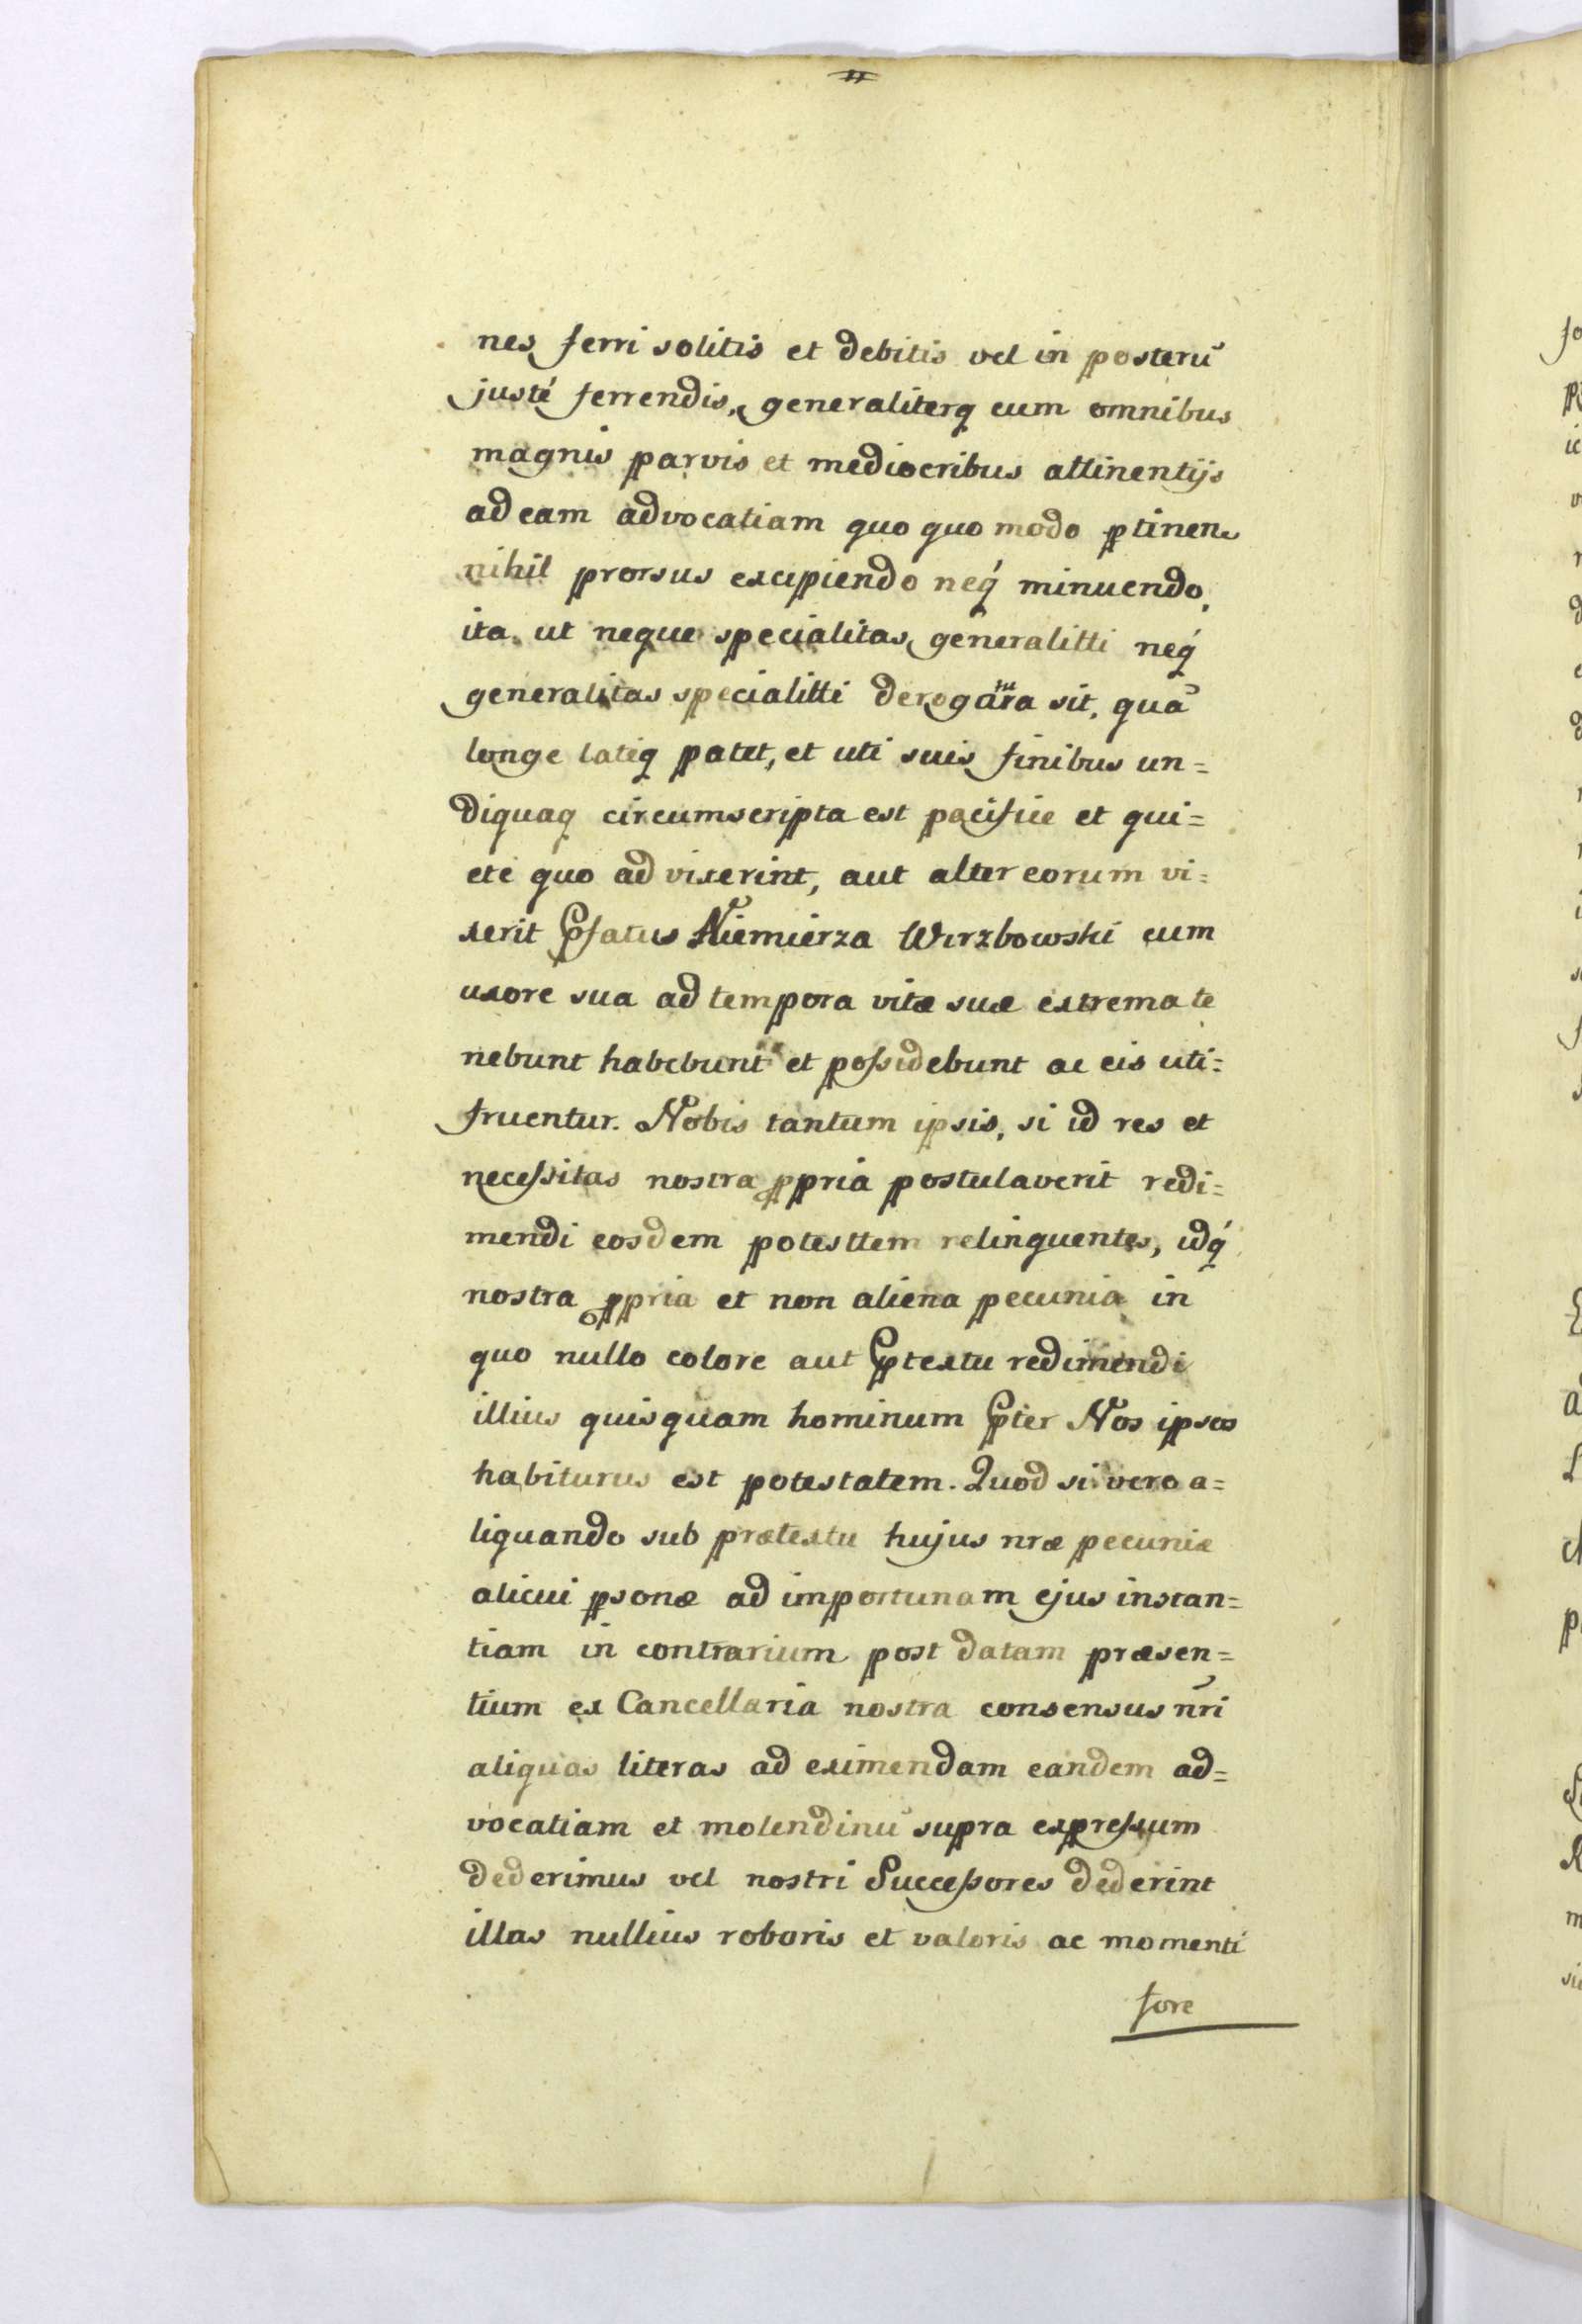 nes ferri solitis et debitis vel in posterũ
justé ferrendis, generaliterq cum omnibus
magnis parvis et mediocribus attinentijs
ad eam advocatiam quo quo modo ptinen
nihil prorsus excipiendo neq́ minuendo,
ita ut neque specialitas generalitti neq́
generalitas specialitti derogatura sit, quã
longe lateq patet, et uti suis finibus un=
diquaq circumscripta est pacifice et qui=
ete quo ad vixerint, aut alter eorum vi=
xerit Pfatus Niemierza Wirzbowski cum
uxore sua ad tempora vitæ suæ extrema te
nebunt habebunt et possidebunt ac eis uti=
fruentur. Nobis tantum ipsis, si id res et
necessitas nostra ppria postulaverit redi=
mendi eosdem potesttem relinquentes, idq́
nostra ppria et non aliena pecunia in
quo nullo colore aut Ptextu redimendi
illius quisquam hominum Pter Nos ipsos
habiturus est potestatem. Quod si vero a=
liquando sub prætextu hujus nræ pecuniæ
alicui psonæ ad importunam ejus instan=
tiam in contrarium post datam præsen=
tium ex Cancellaria nostra consensus nr̃i
aliquas literas ad eximendam eandem ad=
vocatiam et molendinũ supra expressum
dederimus vel nostri Successores dederint
illas nullius roboris et valoris ac momenti
fore